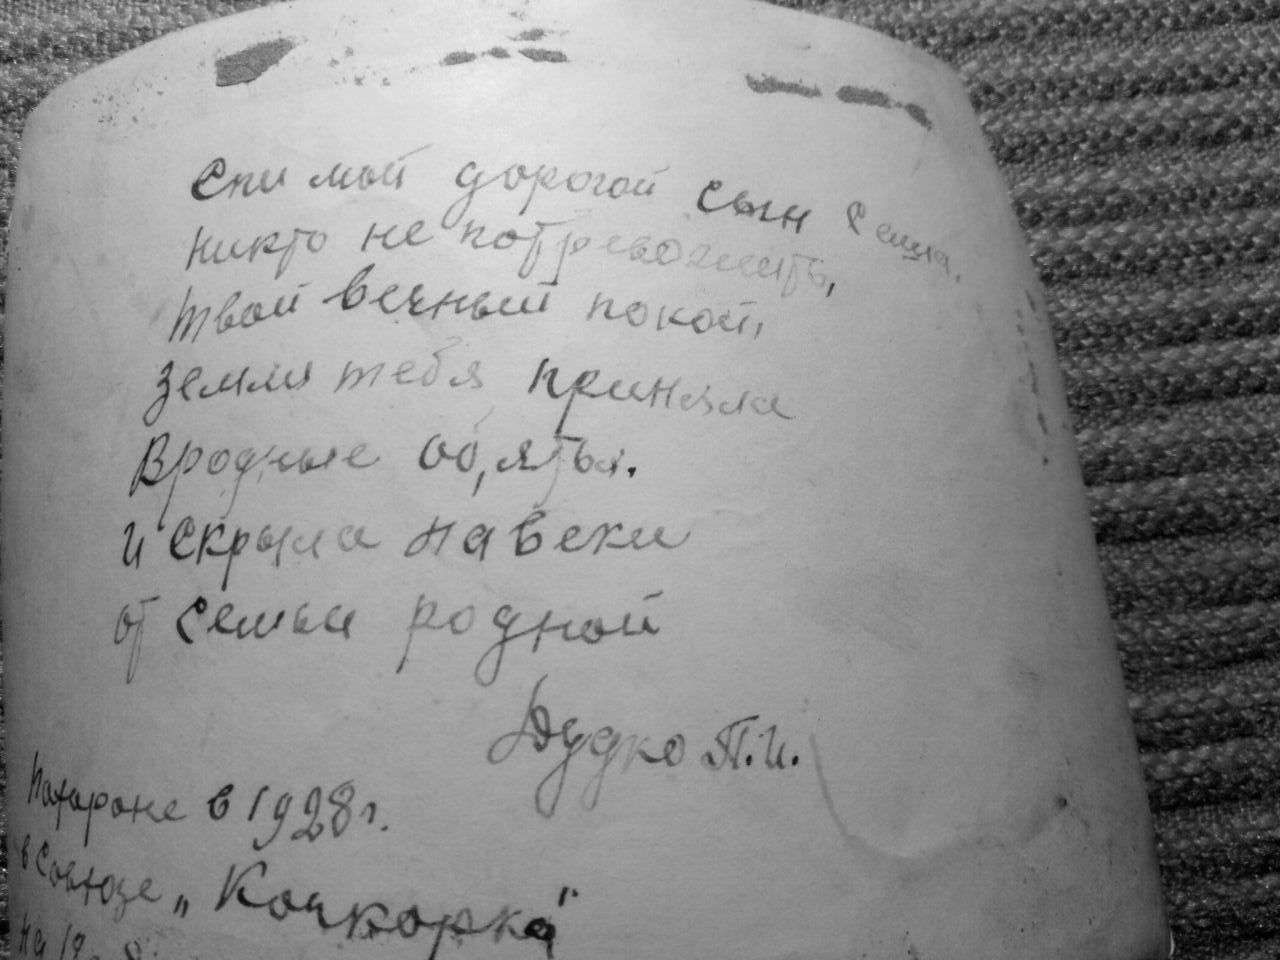 Спи мой дорогой сын Сеша.
Никто не потревожить,
Твой вечный покой,
Земля тебя приняла
Вродные об,ятья.
и скрыла навеки
от семьи родной
Дудко П.И.
Похороне в 1928 г.
в Совтозе „Кочкорка"
На